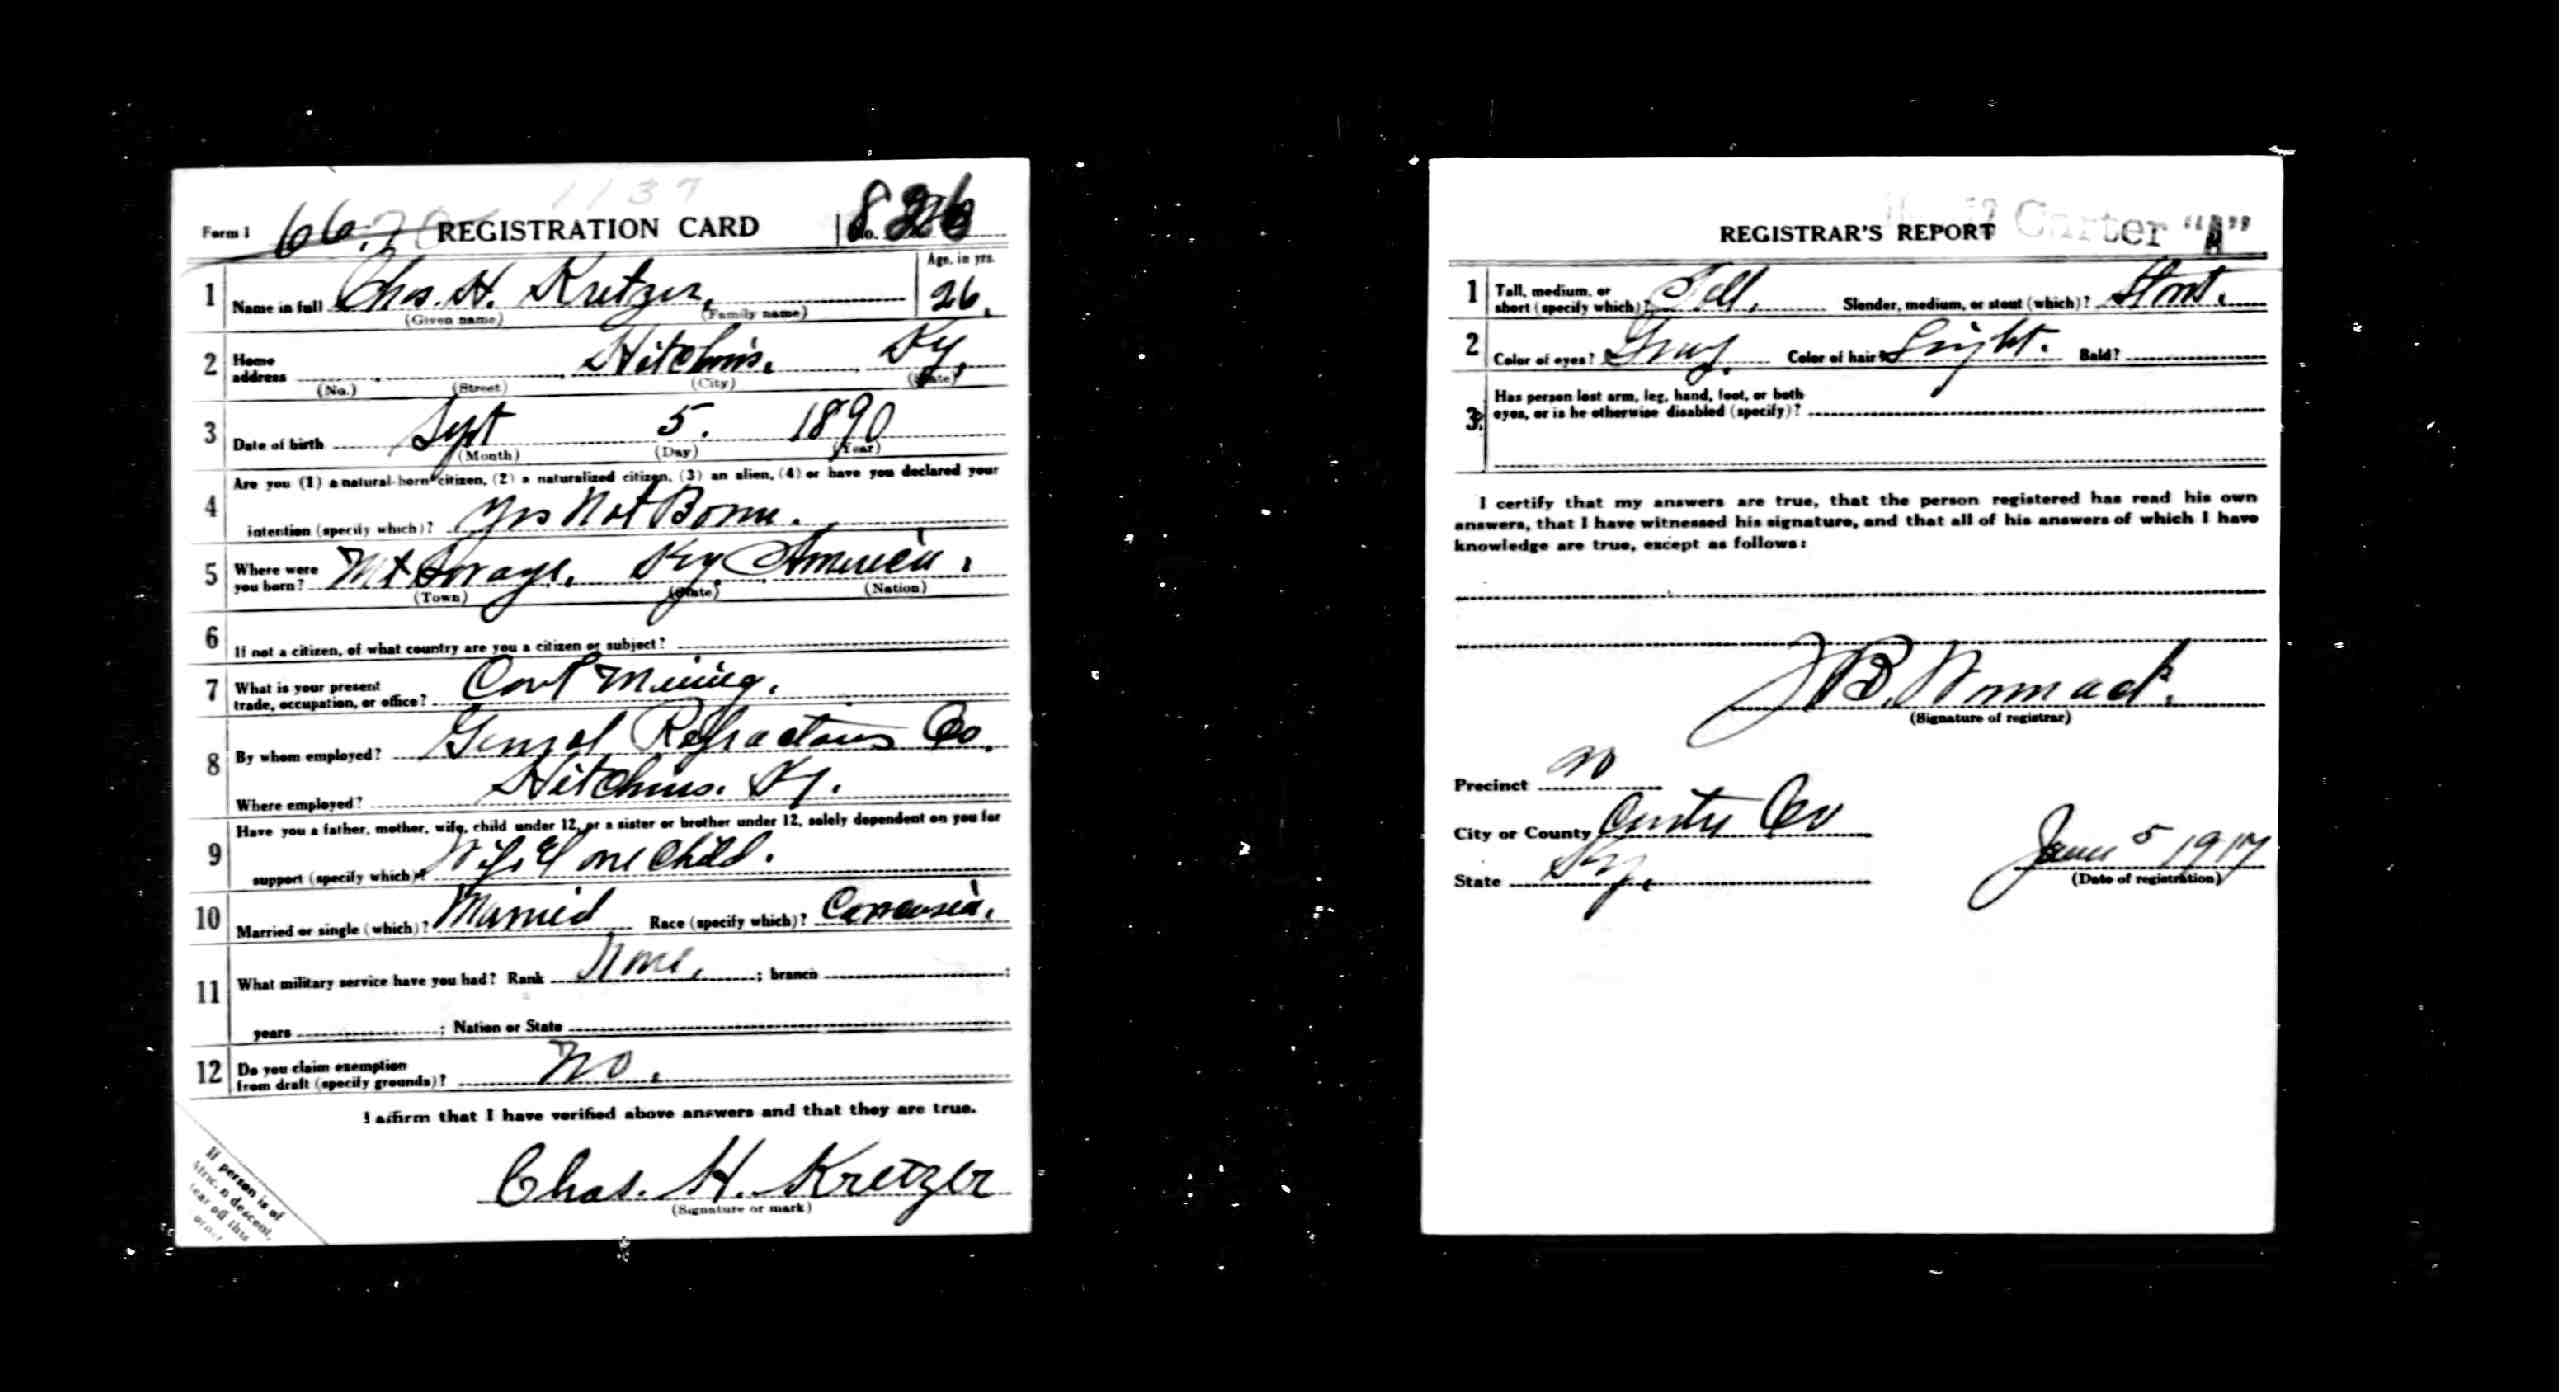 1137
Form 1 66. REGISTRATION CARD No. 826
Age, in yrs.
1 Name in full Chas. H. Kretzer, 26.
(Given name) (Family name)
2 Home address Hitchins. Ky.
(No.) (Street) (City) (State)
3 Date of birth Sept 5. 1890
(Month) (Day) (Year)
4 Are you (1) a natural-born citizen, (2) a naturalized citizen, (3) an alien, (4) or have you declared your
intention (specify which)? Yes Nat Born.
5 Where were you born? Mt Savage. Ky America.
(Town) (State) (Nation)
6 If not a citizen, of what country are you a citizen or subject?
7 What is your present trade, occupation, or office? Mining.
8 By whom employed? General Refractories Co.
Where employed? Hitchins. Ky.
9 Have you a father, mother, wife, child under 12, or a sister or brother under 12, solely dependent on you for
support (specify which)? Wife & one Child.
10 Married or single (which)? Married Race (specify which)?
11 What military service have you had? Rank None. ; branch ;
years ; Nation or State
12 Do you claim exemption from draft (specify grounds)? No.
I affirm that I have verified above answers and that they are true.
Chas. H. Kretzer
(Signature or mark)
If person is of
descent,
off this
REGISTRAR'S REPORT Carter "A"
1 Tall, medium, or short (specify which)? Tall. Slender, medium, or stout (which)? Stout.
2 Color of eyes? Gray. Color of hair? Light. Bald?
3. Has person lost arm, leg, hand, foot, or both
eyes, or is he otherwise disabled (specify)?
I certify that my answers are true, that the person registered has read his own
answers, that I have witnessed his signature, and that all of his answers of which I have
knowledge are true, except as follows:
J B. Womack.
(Signature of registrar)
Precinct
City or County Carter Co
State Ky. June 5 1917
(Date of registration)